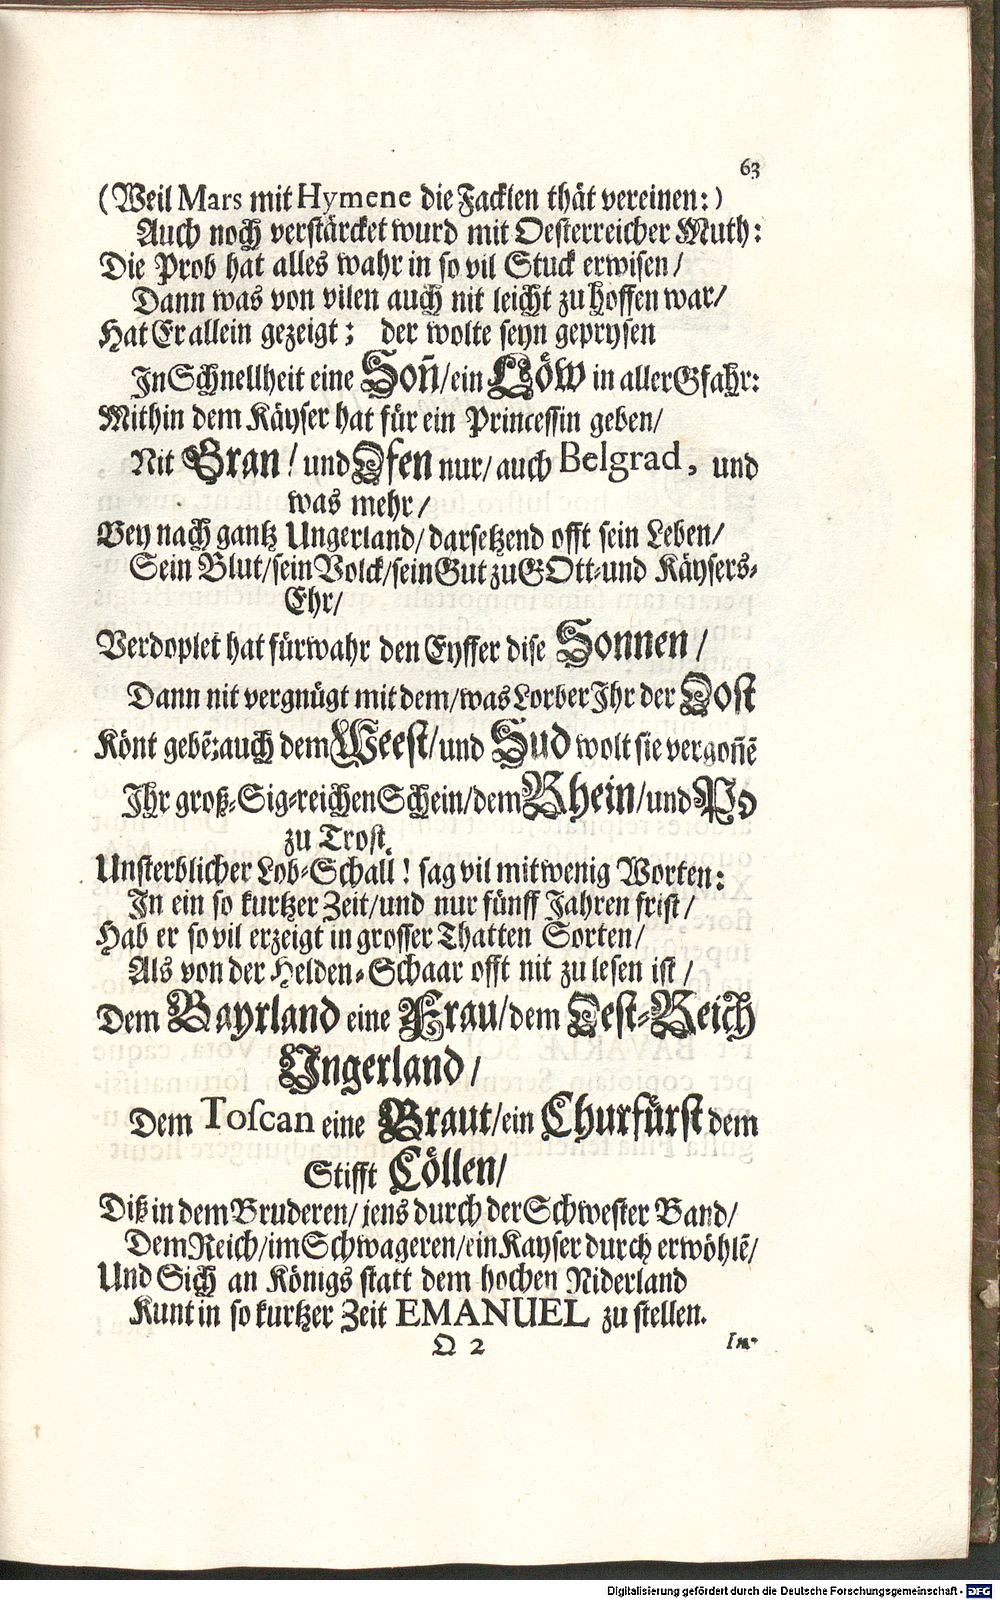 63
(Weil Mars mit Hymene die Facklen thät vereinen:)
Auch noch verstärcket wurd mit Oesterreicher Muth:
Die Prob hat alles wahr in so vil Stuck erwisen/
Dann was von vilen auch nit leicht zu hoffen war/
Hat Er allein gezeigt; der wolte seyn geprysen
In Schnellheit eine Soñ/ein Löw in aller Gfahr:
Mithin dem Käyser hat für ein Princessin geben/
Nit Gran/ und Ofen nur/ auch Belgrad, und
was mehr/
Bey nach gantz Ungerland/ darsetzend offt sein Leben/
Sein Blut/sein Volck/sein Gut zu GOtt-und Käysers-
Ehr/
Verdoplet hat fürwahr den Eyffer dise Sonnen/
Dann nit vergnügt mit dem/was Lorber Ihr der Oost
Könt gebē:auch dem Weest/und Sud wolt sie vergoñē
Ihr groß-Sig-reichen Schein/dem Rhein/und Po
zu Trost.
Unsterblicher Lob-Schall! sag vil mit wenig Worten:
In ein so kurtzer Zeit/und nur fünff Jahren frist/
Hab er so vil erzeigt in grosser Thatten Sorten/
Als von der Helden-Schaar offt nit zu lesen ist/
Dem Bayrland eine Frau/dem Oest-Reich
Ungerland/
Dem Toſcan eine Braut/ein Churfürst dem
Stifft Cöllen/
Diß in dem Bruderen/ jens durch der Schwester Band/
Dem Reich/im Schwageren/ein Kayser durch erwöhlē/
Und Sich an Königs statt dem hochen Niderland
Kunt in so kurtzer Zeit EMANUEL zu stellen.
Q 2 In-
Digitalisierung gefördert durch die Deutsche Forschungsgemeinschaft - DFG